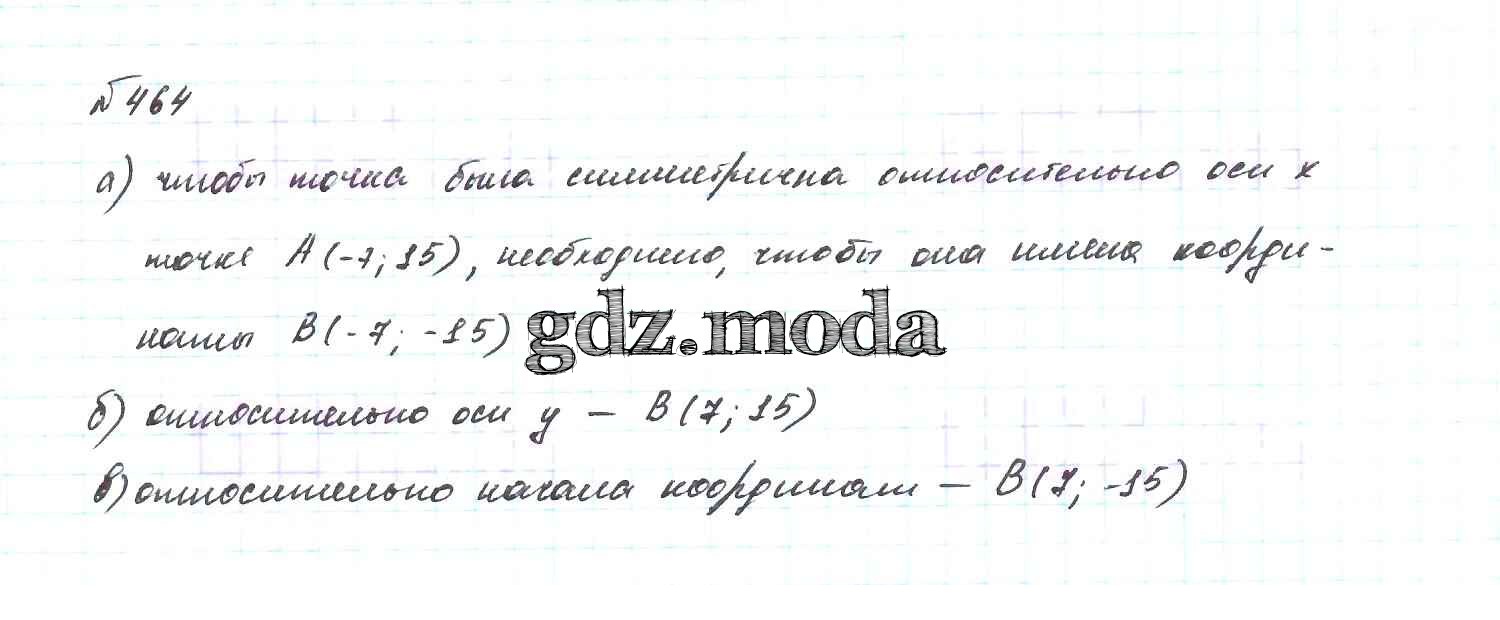 № 464
а) чтобы точка была симметрична относительно оси x
точке A(-7; 15), необходимо, чтобы она имела коорди-
наты B(-7; -15)
gdz.moda
б) относительно оси y — B(7; 15)
в) относительно начала координат — B(7; -15)